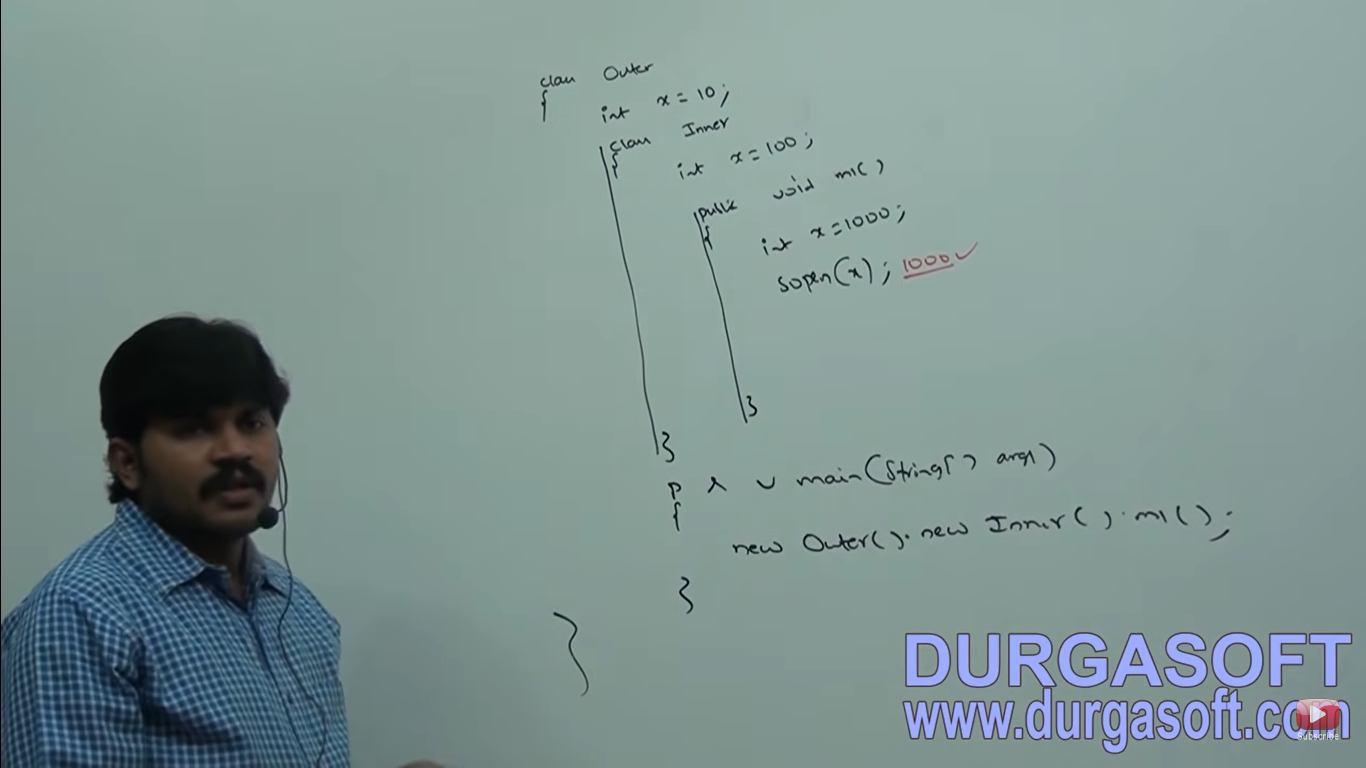 class Outer
{
int x = 10;
class Inner
{
int x = 100;
public void m1()
{
int x = 1000;
sopln(x); 1000✓
}
}
p s v main(String[] args)
{
new Outer().new Inner().m1();
}
}
DURGASOFT
www.durgasoft.com
Subscribe